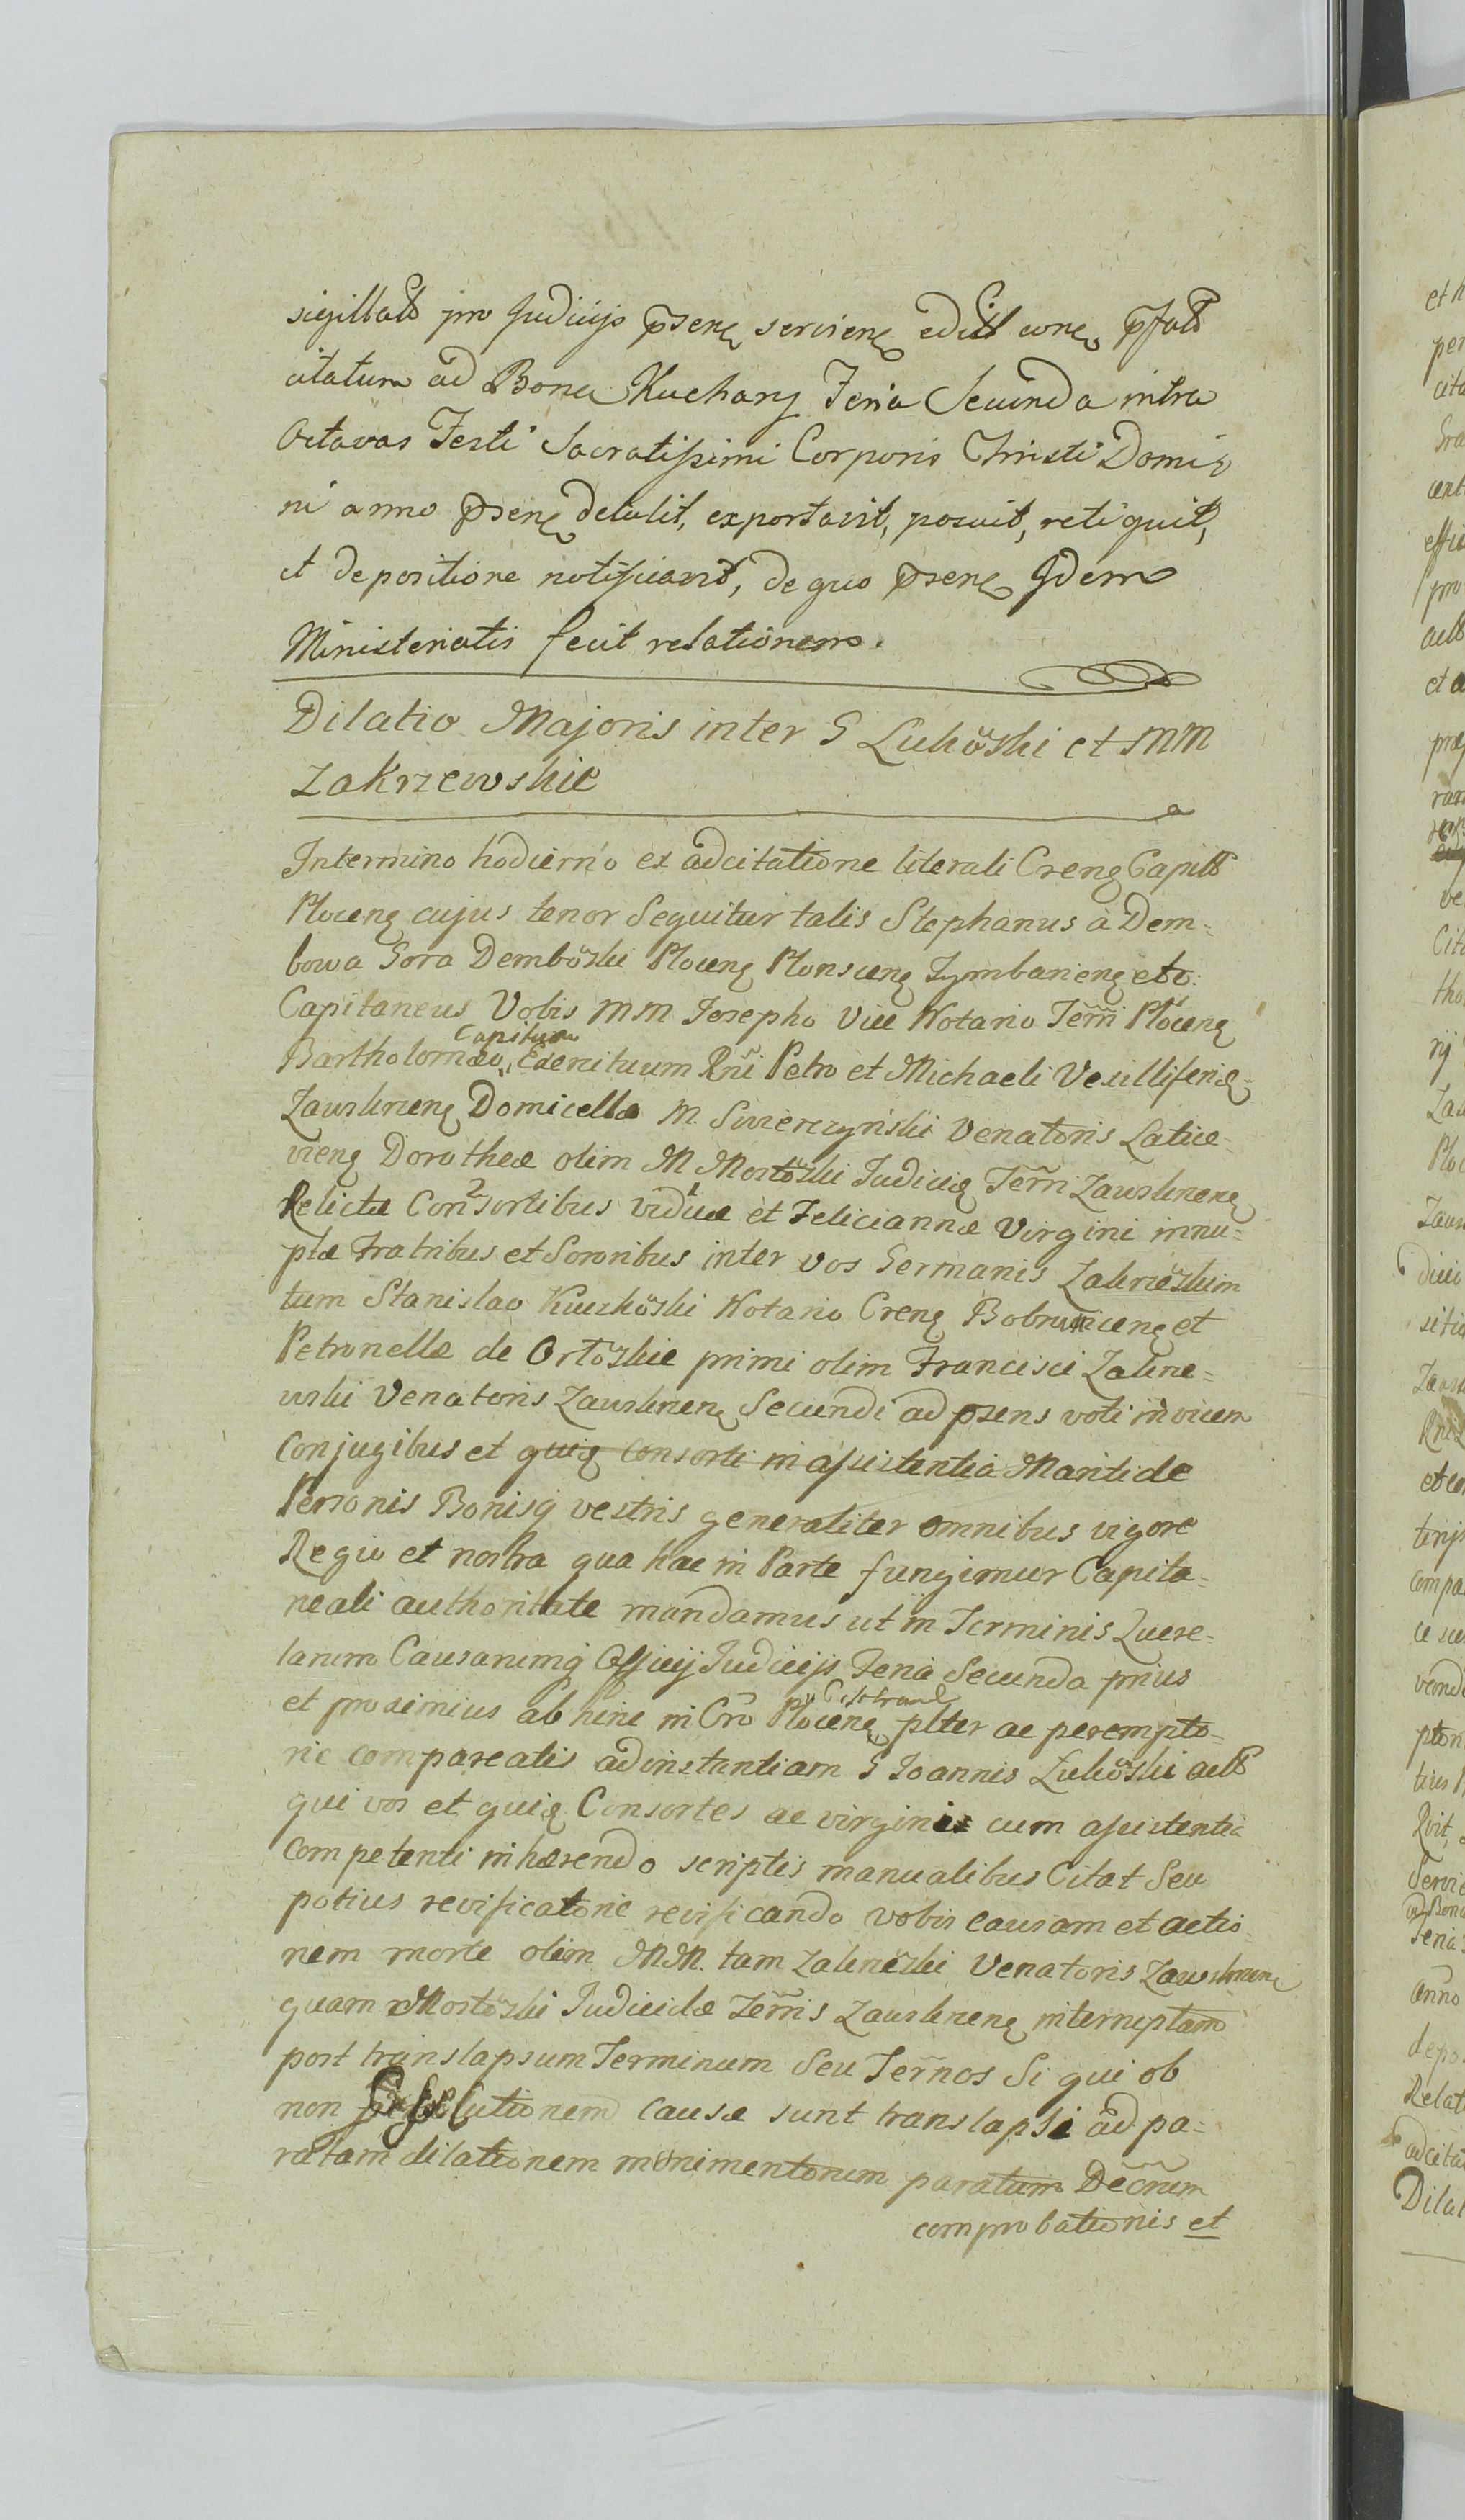 sigillatt pro Judicijs psenę servienę editt conę pffatt
citatum ad Bona Kuchary Feria Secunda intra
Octavas Festi Sacratissimi Corporis Christi Domi-
ni anno psenę detulit, exportavit, posuit, reliquit,
et de positione notificavit, de quo psenę Idem
Ministerialis fecit relationem.
Dilatio Majoris inter G Lukoski et MM
Zakrzewskie
In termino hodierno ex adcitatione literali Crenę Capitt
Plocenę cujus tenor Sequitur talis Stephanus à Dem-
bowa Gora Demboski Plocenę Plonscenę Zymbarienę etc:
Capitaneus Vobis MM Josepho Vice Notario Terri Plocenę
Bartholomæo Capitaneo Exercituum Rni Petro et Michaeli Vexilliferię-
Zawskrzenę Domicellæ M. Swierczyński Venatoris Latice-
vienę Dorotheæ olim M Mostoski Judicię Terri Zawskrzenę
Relictæ Con2sortibus vid1uæ et Feliciannæ Virgini innu-
ptæ Fratribus et Sororibus inter vos Germanis Zakrzeskim
tum Stanislao Kuczkoski Notario Crenę Bobrownicenę et
Petronellæ de Ortoskie primi olim Francisci Zakrze-
wski Venatoris Zawskrzenę Secundi ad psens voti invicem
Conjugibus et quię consorti in assistentia Mariti de
Personis Bonisq vestris generaliter omnibus vigore
Regio et nostra qua hac in Parte fungimur Capita-
neali authoritate mandamus ut in Terminis Quere-
larum Causarumq Officij Judicijs Feria Secunda prius
et proximius ab hinc in Cro Plocenę plter ac perempto-
rie compareatis ad instantiam G Joannis Lukoski actt
qui vos et quię Consortes ac virginis cum assistentia
Competenti inhærendo scriptis manualibus Citat Seu
potius revificatorie revificando vobis causam et actio-
nem morte olim MM. tam Zakrzeski Venatoris Zawskrzenę
quam Mostoski Judicidæ Terris Zawskrzenę interruptam
post translapsum Terminum Seu Ternos Si qui ob
non causæ sunt translapsi ad pa-
ratam dilationem munimentorum paratum Decrum
comprobationis et